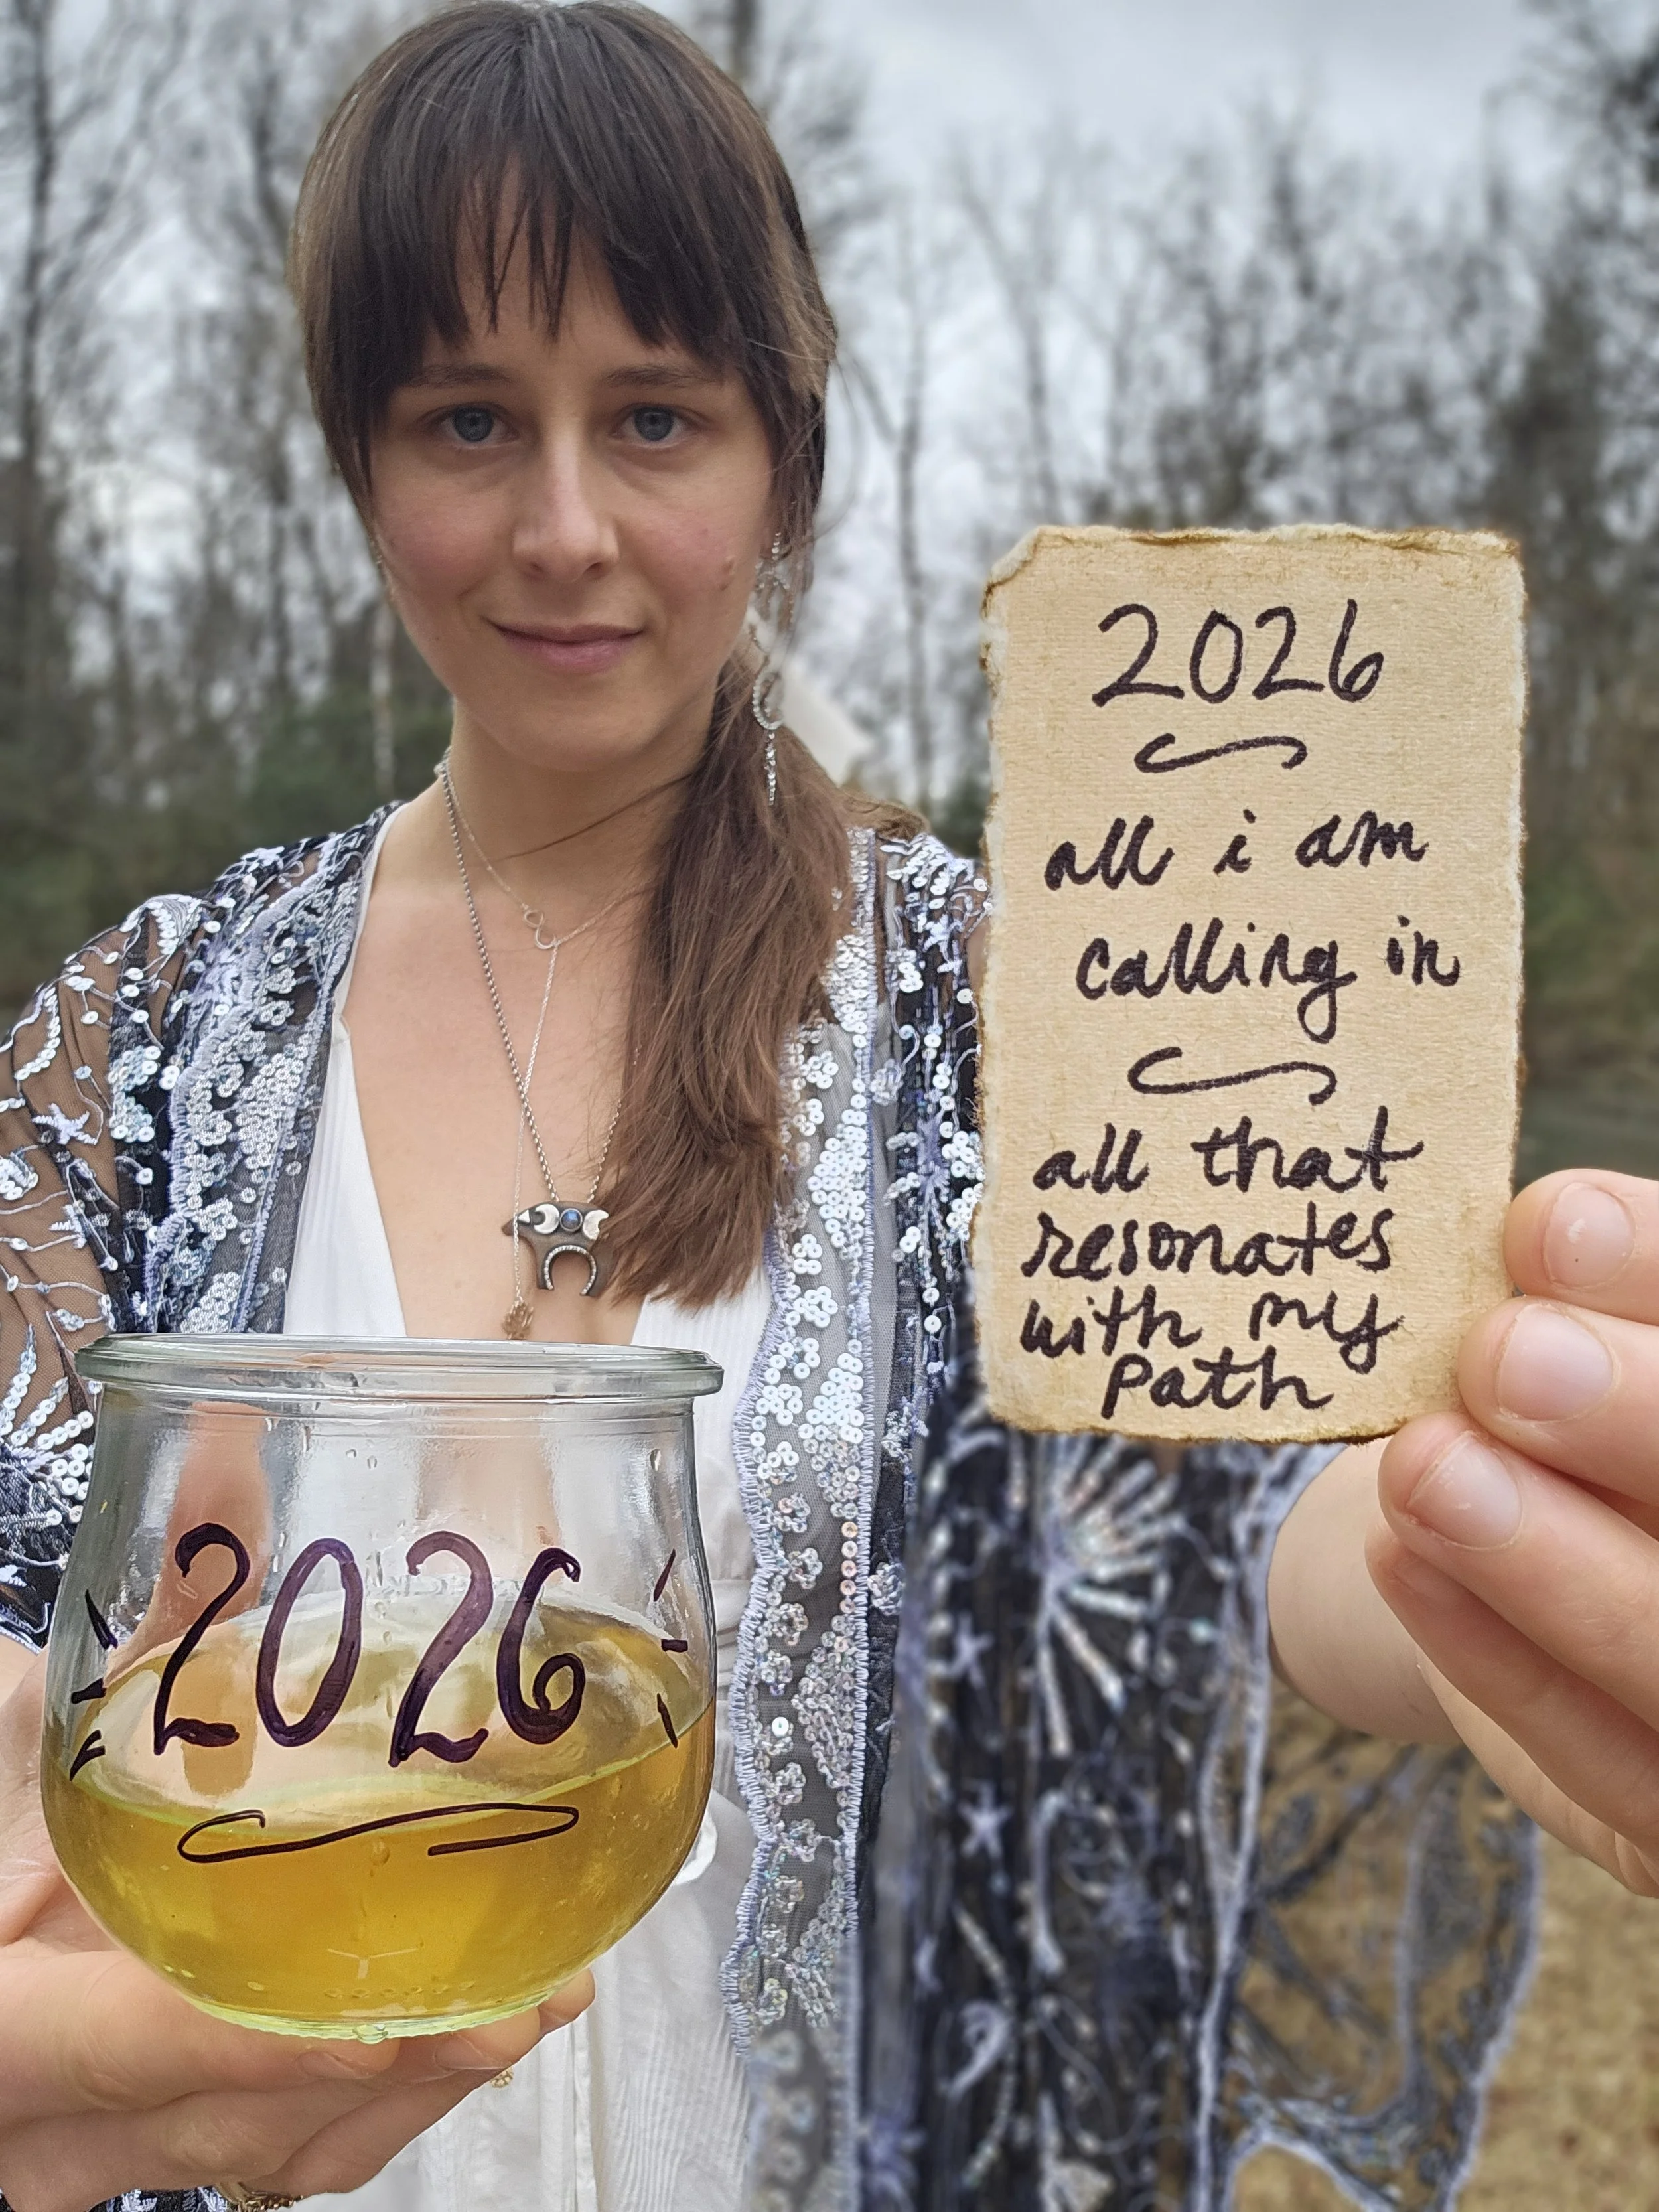 2026
all i am
calling in
all that
resonates
with my
path
2026